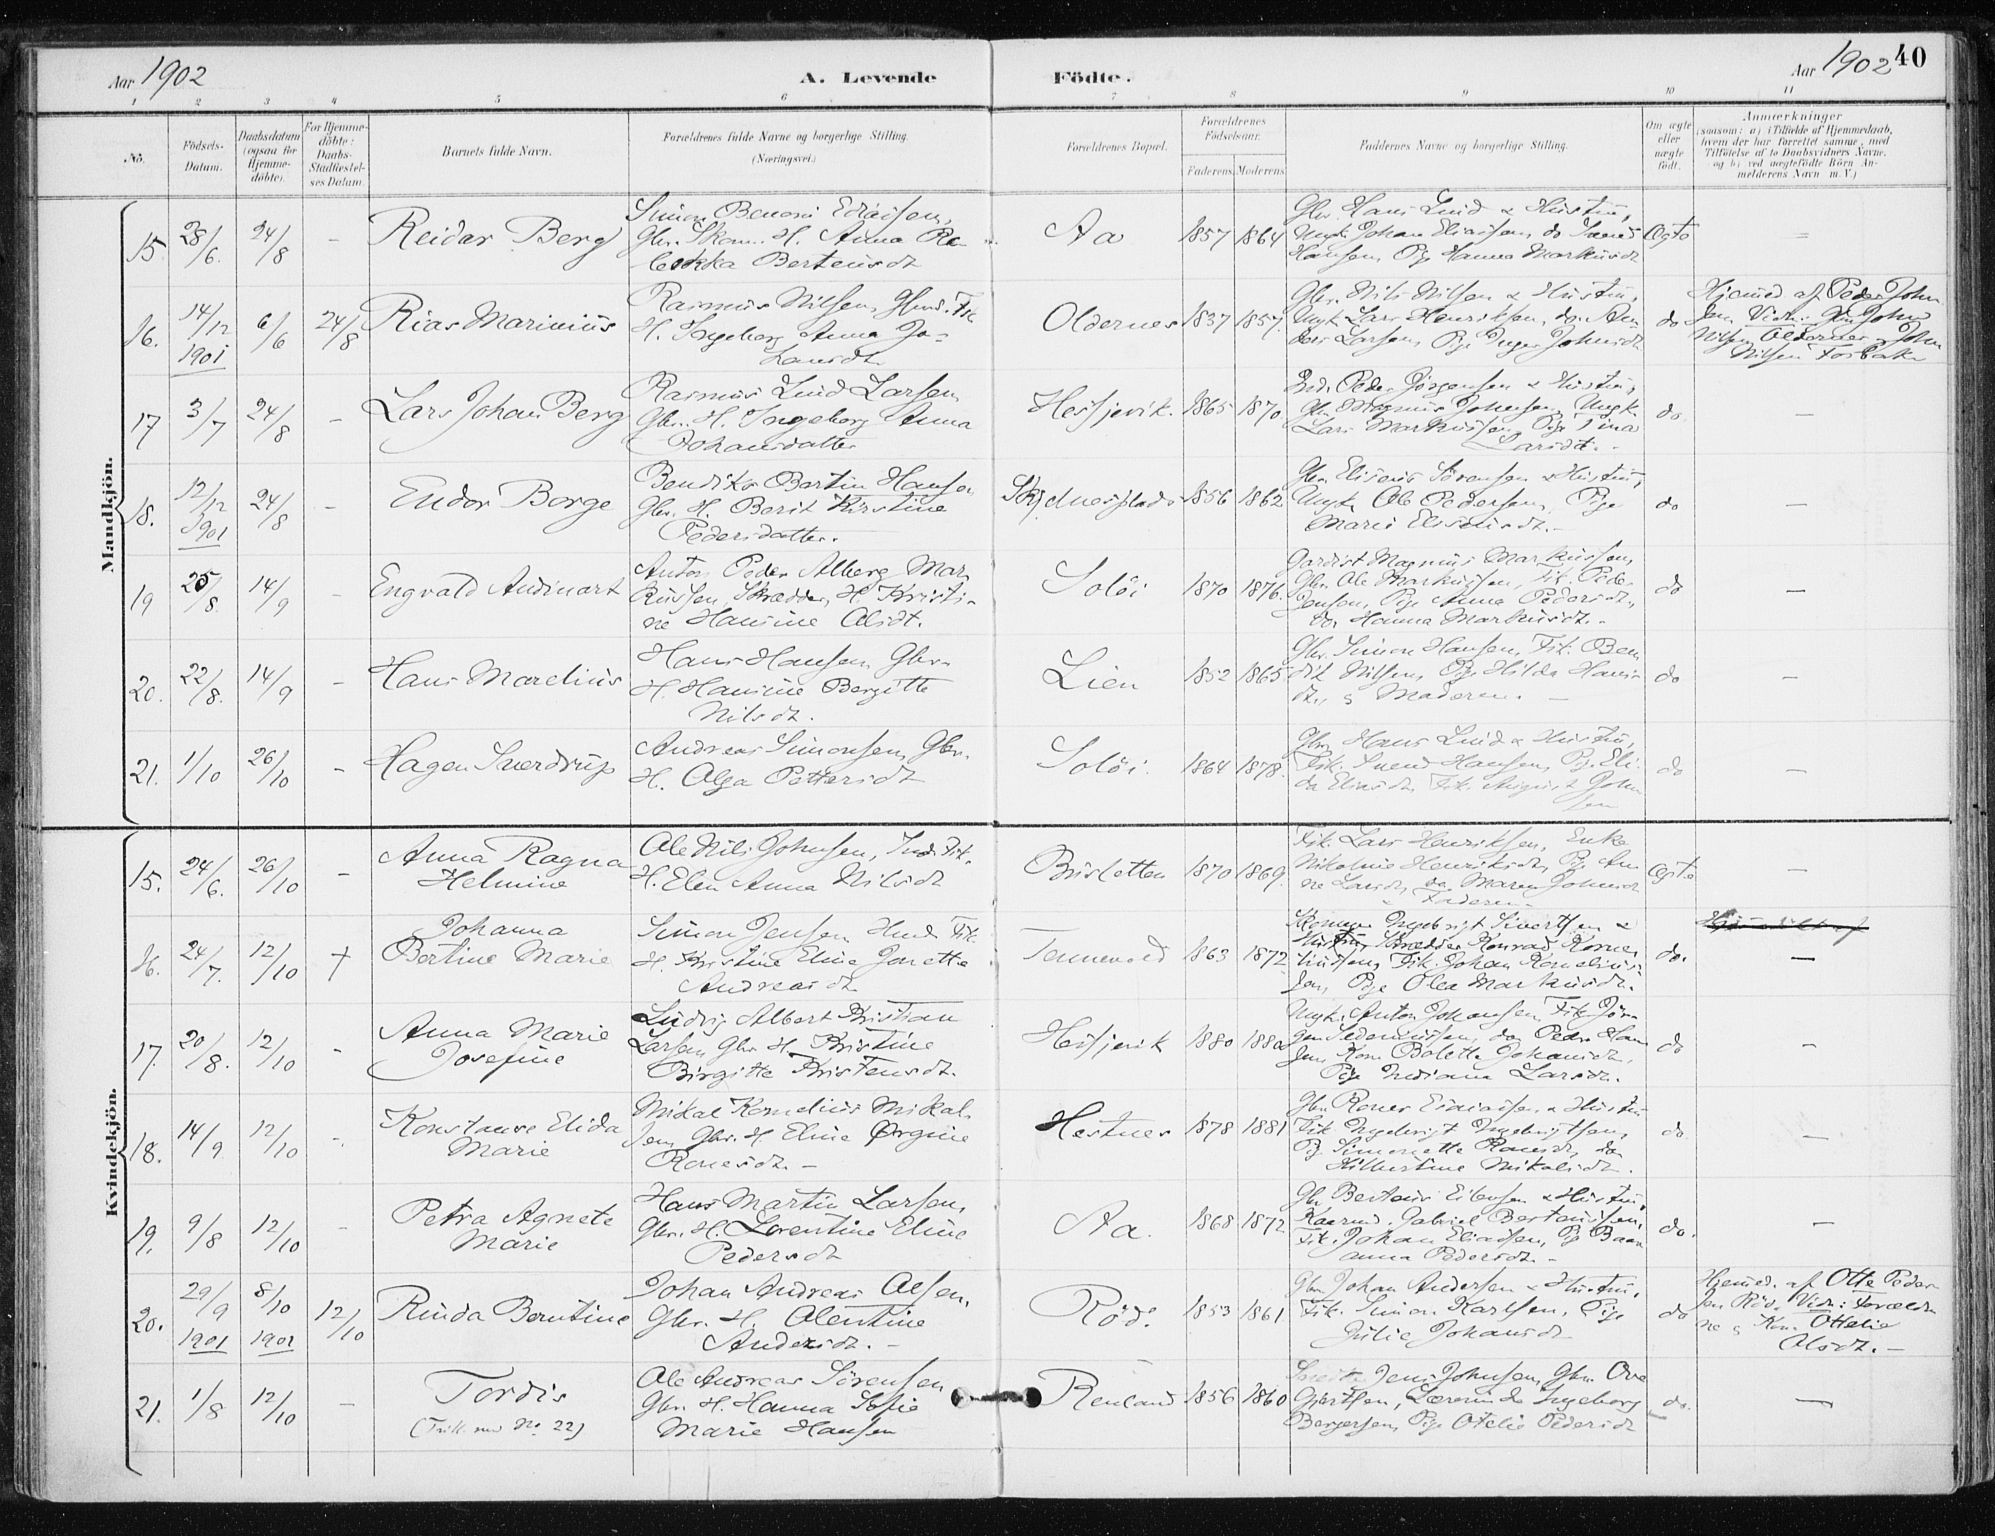 Aar 1902 A. Levende Födte. Aar 1902 40
1 2 3 4 5 6 7 8 9 10 11
No. Födsels-Datum. Daabsdatum (ogsaa for Hjemme-döbte). For Hjemme-döbte: Daabs-Stadfæstel-ses Datum. Barnets fulde Navn. Forældrenes fulde Navne og borgerlige Stilling. (Næringsvei.) Forældrenes Bopæl. Forældrenes Födselsaar. Faderens Moderens Faddernes Navne og borgerlige Stilling. Om ægte eller uægte födt. Anmærkninger (saasom: a) i Tilfælde af Hjemmedaab, hvem der har forrettet samme, med Tilföielse af to Daabsvidners Navne, og b) ved uægtefödte Börn An-melderens Navn m. V.)
Mandkjön.
15. 28/6. 24/8 - Reidar Berg
Simon Benoni
Gbr. H. Anna Re-
bekka Berteusdt
Aa 1857 1864
Gbr. Hans Lind & Hustru,
Ungk. Johan Eliassen, do Svend
Hansen, Pige Hanna Markusdt
Ægte
16. 14/12 1901 6/6 24/8 Rias Marinius
Rasmus Nilsen,
H. Ingeborg Anna Jo-
hansdt.
Oldernes 1837 1857.
Gbr. Nils Nilsen & Hustru,
Ungk. Lars Henriksen, do.
Larsen, Pige Inger Johnsdt
do
Hjemmed af Peder John
sen Vidn: John
Nilsen Oldernes & John
Nilsen Forbakn
17 3/7 24/8 - Lars Johan Berg
Rasmus Lind Larsen,
Gbr. H. Ingeborg Anna
Johansdatter
Hessjevik. 1865 1870
Ind. Peder Jörgensen & Hustru,
Gbr. Magnus Johansen, Ungk.
Lars Markussen, Pige Tina
Larsdt. -
do. -
18. 12/12 1901 24/8 - Endor Borge
Bendiks Bertin Hansen
Gbr. H. Berit Kirstine
Pedersdatter.
Skjelnesplads 1856 1862
Gbr. Eliseus Sörensen & Hustru,
Ungk. Ole Pedersen, Pige
Marie Eliseusdt. -
do -
19 25/8. 14/9 - Engvald Andinart
Anton Peder Alberg Mar-
kussen, Skrædder, H. Kristi-
ne Hansine Olsdt.
Solöi 1870 1876.
Gardist Magnus Markussen,
Gbr. Ole Markussen, Fik. Peder
Jensen, Pige Anna Pedersdt.,
do, Hanna Markusdt. -
do -
20. 22/8. 14/9 - Hans Marelius
Hans Hansen, Gbr.
H. Hansine Bergitte
Nilsdt.
Lien 1852 1865
Gbr. Simon Hansen, Fik. Ben-
dik Nilsen, Pige Hilda Hans-
dt., g Moderen. -
do -
21. 1/10 26/10 - Hagen Sverdrup
Andreas Simonsen, Gbr.
H. Olga Pettersdt
Solöi. 1864 1878.
Gbr. Hans Lind & Hustru,
Fik. Svend Hansen, Pg. Eli-
da Eliasdt, Fik. August John
sen
do -
Kvindekjön.
15. 24/6. 26/10 - Anna Ragna
Helmine
Ole Nils Johnsen, Ind. Fik.
H. Elen Anna Nilsdt
Brusletten 1870 1869.
Fik. Lars Henriksen, Enke
Nikoline Henriksdt, Pg. An-
ne Larsdt, do Maren Johnsdt
& Faderen
Ægte -
16. 24/7. 12/10 + Johanna
Bertine Marie
Simon Jensen Fik.
H. Kristine Eline Jonette
Andreasdt.
Tennevold 1863 1872
Ingebrigt Sivertsen &
Hustru, Skrædder Konrad Korne-
liussen, Fik. Johan Kornelius-
sen, Pige Olea Markusdt.
do. -
17. 20/8. 12/10 - Anna Marie
Josefine
Ludvig Albert Kristian
Larsen, Gbr. H. Kristine
Birgitte Kristensdt.
Hessjevik 1880 1880
Ungk. Anton Johansen, Fik. Jör-
gen do Peder Han-
sen, Kone Bolette Johansdt.
Pige Indiana Larsdt.
do -
18. 14/9 12/10 -. Konstanse Elida
Marie
Mikal Kornelius Mikal-
sen, Gbr. H. Eline Ørgine
Ronesdt. -
Hestnes 1878 1881
Gbr. Rones & Hustru
Fik Ingebrigt Ingebrigtsen,
Pg. Simonette Ronesdt, do
Hilbertine Mikalsdt.
do -
19. 9/8 12/10 - Petra Agnete
Marie
Hans Martin Larsen,
Gbr. H. Lorentine Eline
Pedersdt
Aa. 1868 1872
Gbr. Berteus & Hustru,
Gabriel Berteussen,
Fik. Johan Eliassen, Pg
anna Pedersdt. -
do. -
20. 29/9 1901 8/10 1901 12/10 Rinda Berntine
Johan Andreas Olsen,
Gbr. H. Olentine
Andersdt. -
Röd. 1853 1861
Gbr. Johan Andersen & Hustru,
Fik. Simon Karlsen, Pige
Julie Johansdt
do
Hjemmed. af Otte Peder
sen Röd. Vidn: Foræld
ne g Kone Ottelie
Olsdt. -
21. 1/8 12/10 - Tordis
(Trill. med No. 22)
Ole Andreas Sörensen
Gbr. H. Hanna Sofie
Marie Hansen
Renland 1856 1860
Jens Johnsen, Gbr. Ove
Gjertsen, Lærerinde Ingeborg
Bergersen, Pige Otelie Pedersdt
do. -